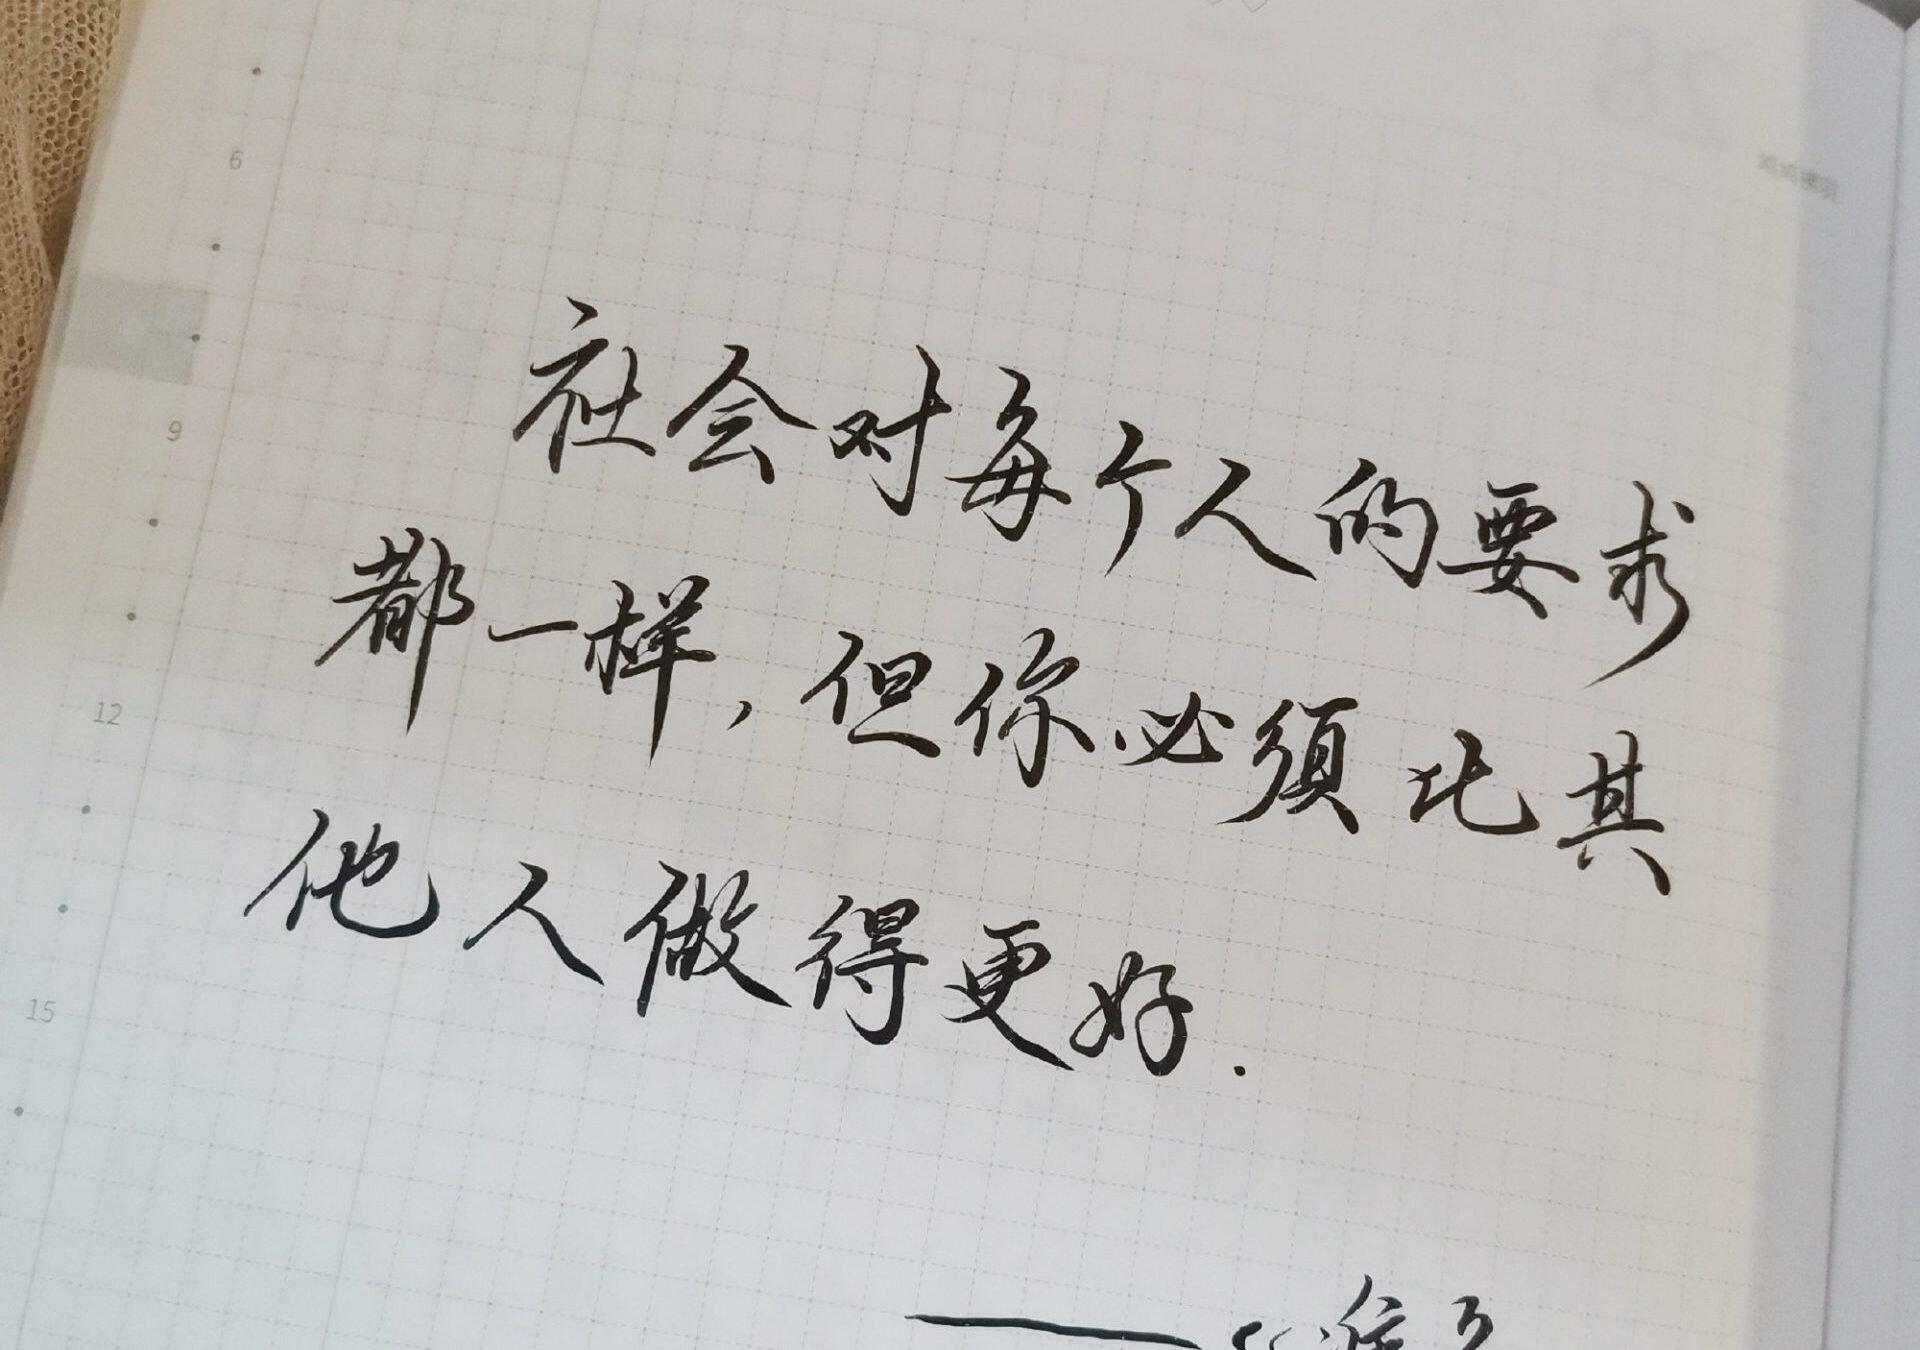 6
9
12
15
社会对每个人的要求
都一样,但你必须比其
他人做得更好.